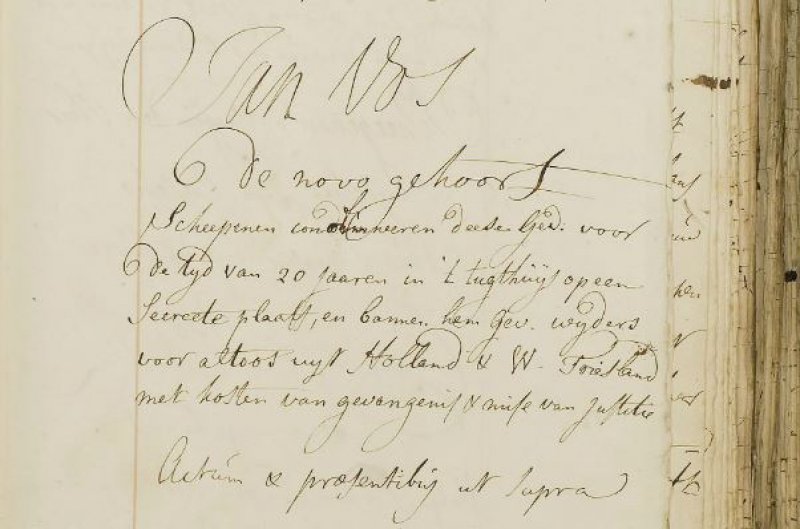 Jan Vos
De novo gehoort
Scheepenen condemneeren deese Gev: voor
de tyd van 20 jaaren in 't tugthuijs op een
Secreete plaats, en bannen hem gev. wyders
voor altoos uijt Holland & W. Friesland
met kosten van gevangenis & mise van Justitie
Actúm & præsentibús ut supra